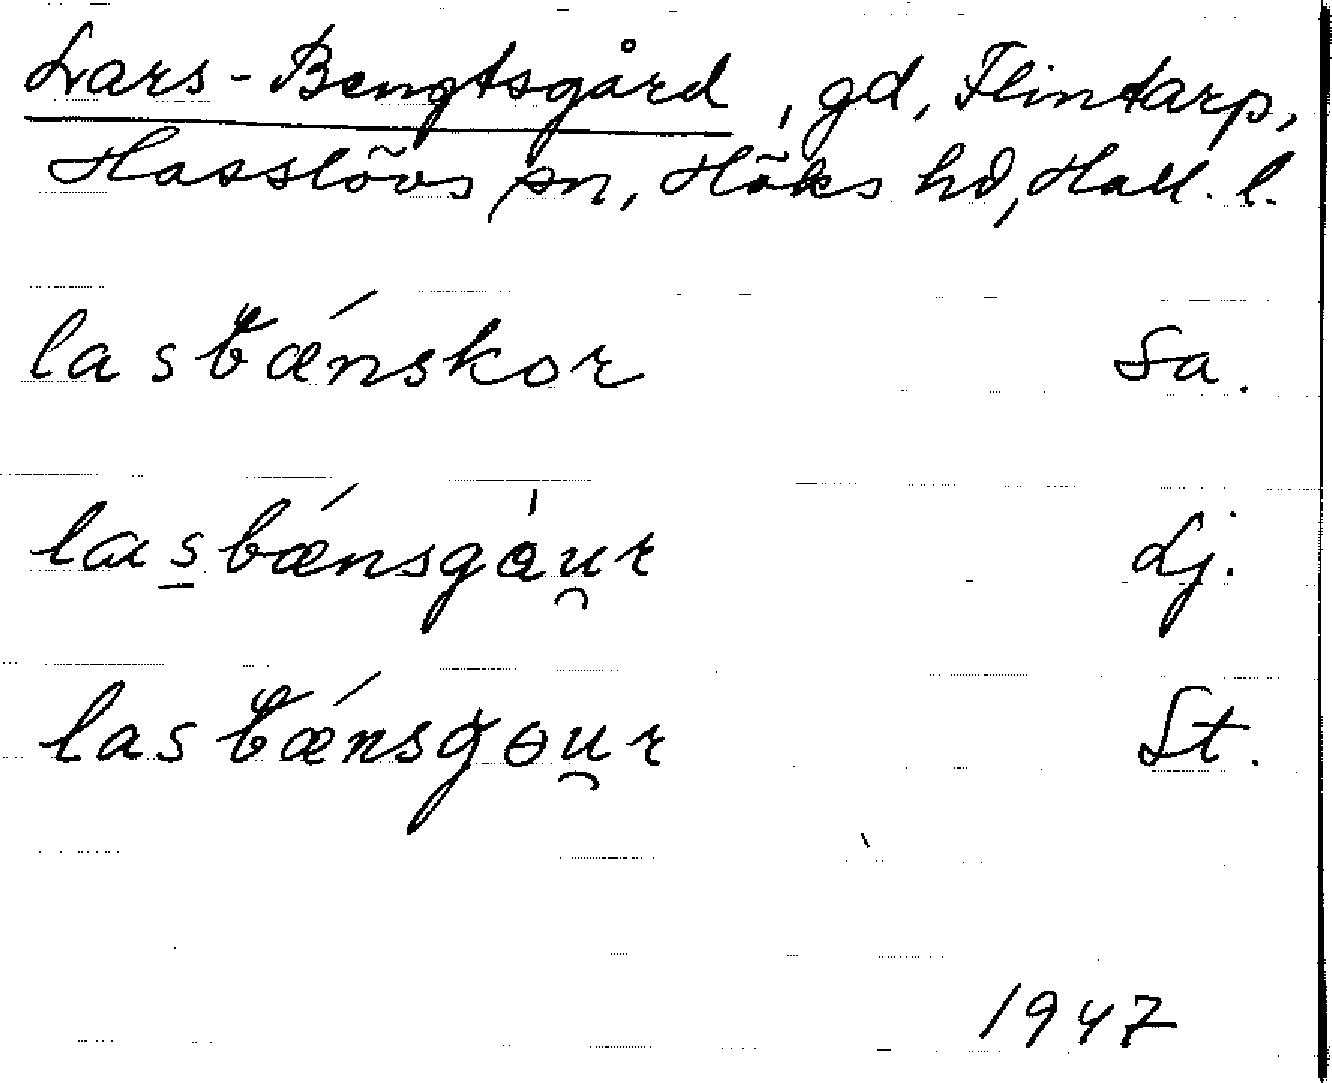 Lars-Bengtsgård, gd, Flintarp,
Hasslövs sn, Höks hd, Hall. l.
lasbǽnskor Sa.
lasbǽnsgau̯r Lj.
lasbǽnsgɵu̯r St.
1947